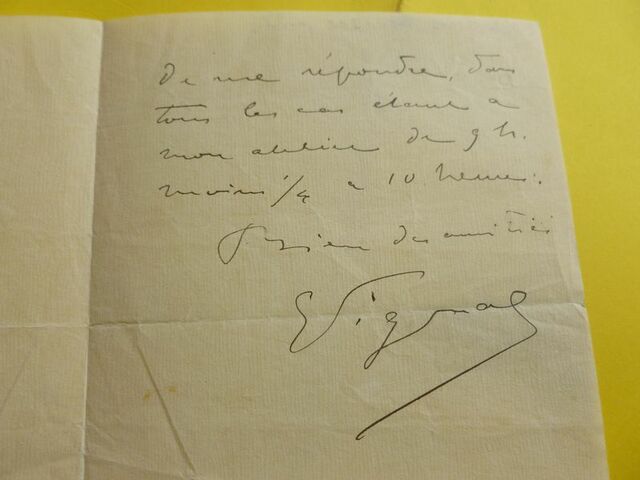 de me répondre, dans
tous les cas étant à
mon atelier de 9 h.
moins 1/4 à 10 heures.
bien des amitiés
E Vignal